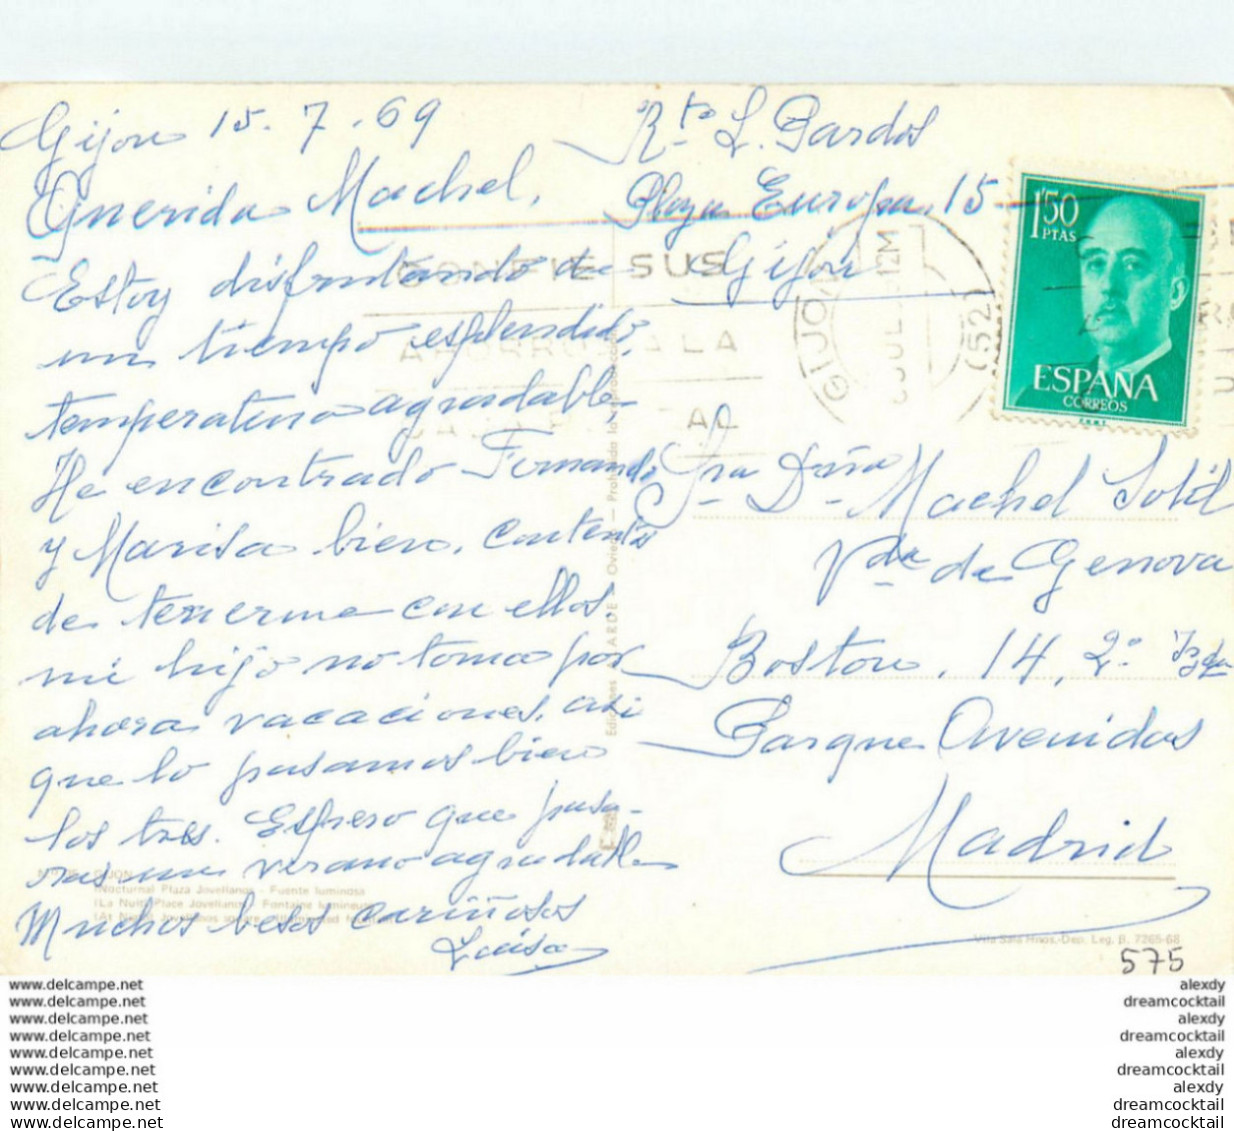 Gijon 15.7.69
Querida Machel,
Estoy disfrutando de
un tiempo esplendido,
temperatura agradable
He encontrado Fernando
y Marisa bien, contentos
de tenerme con ellos,
mi hijo no toma por
ahora vacaciones, asi
que lo pasamos bien
los tres. Espero que pasa-
rás un verano agradable
Muchos besos cariñosos
Luisa
Rte L. Bardos
Plaza Europa, 15
Gijón
1'50
PTAS
ESPAÑA
CORREOS
F.N.M.T.
CONFIE SUS
AHORROS A LA
CAJA POSTAL
GIJON
JUL 12M
(52)
Sra Dña Machel Solil
Vda de Genova
Boston, 14, 2º Izda
Parque Avenidas
Madrid
Ediciones ARDE Oviedo — Prohibida la reproducción
GIJON
(Nocturna) Plaza Jovellanos - Fuente luminosa
(La Nuit) Place Jovellanos - Fontaine lumineuse
(At Night) Jovellanos square - Illuminated
Vila Sala Hnos.-Dep. Leg. B. 7265-68
575
www.delcampe.net
www.delcampe.net
www.delcampe.net
www.delcampe.net
www.delcampe.net
www.delcampe.net
www.delcampe.net
www.delcampe.net
www.delcampe.net
alexdy
dreamcocktail
alexdy
dreamcocktail
alexdy
dreamcocktail
alexdy
dreamcocktail
dreamcocktail